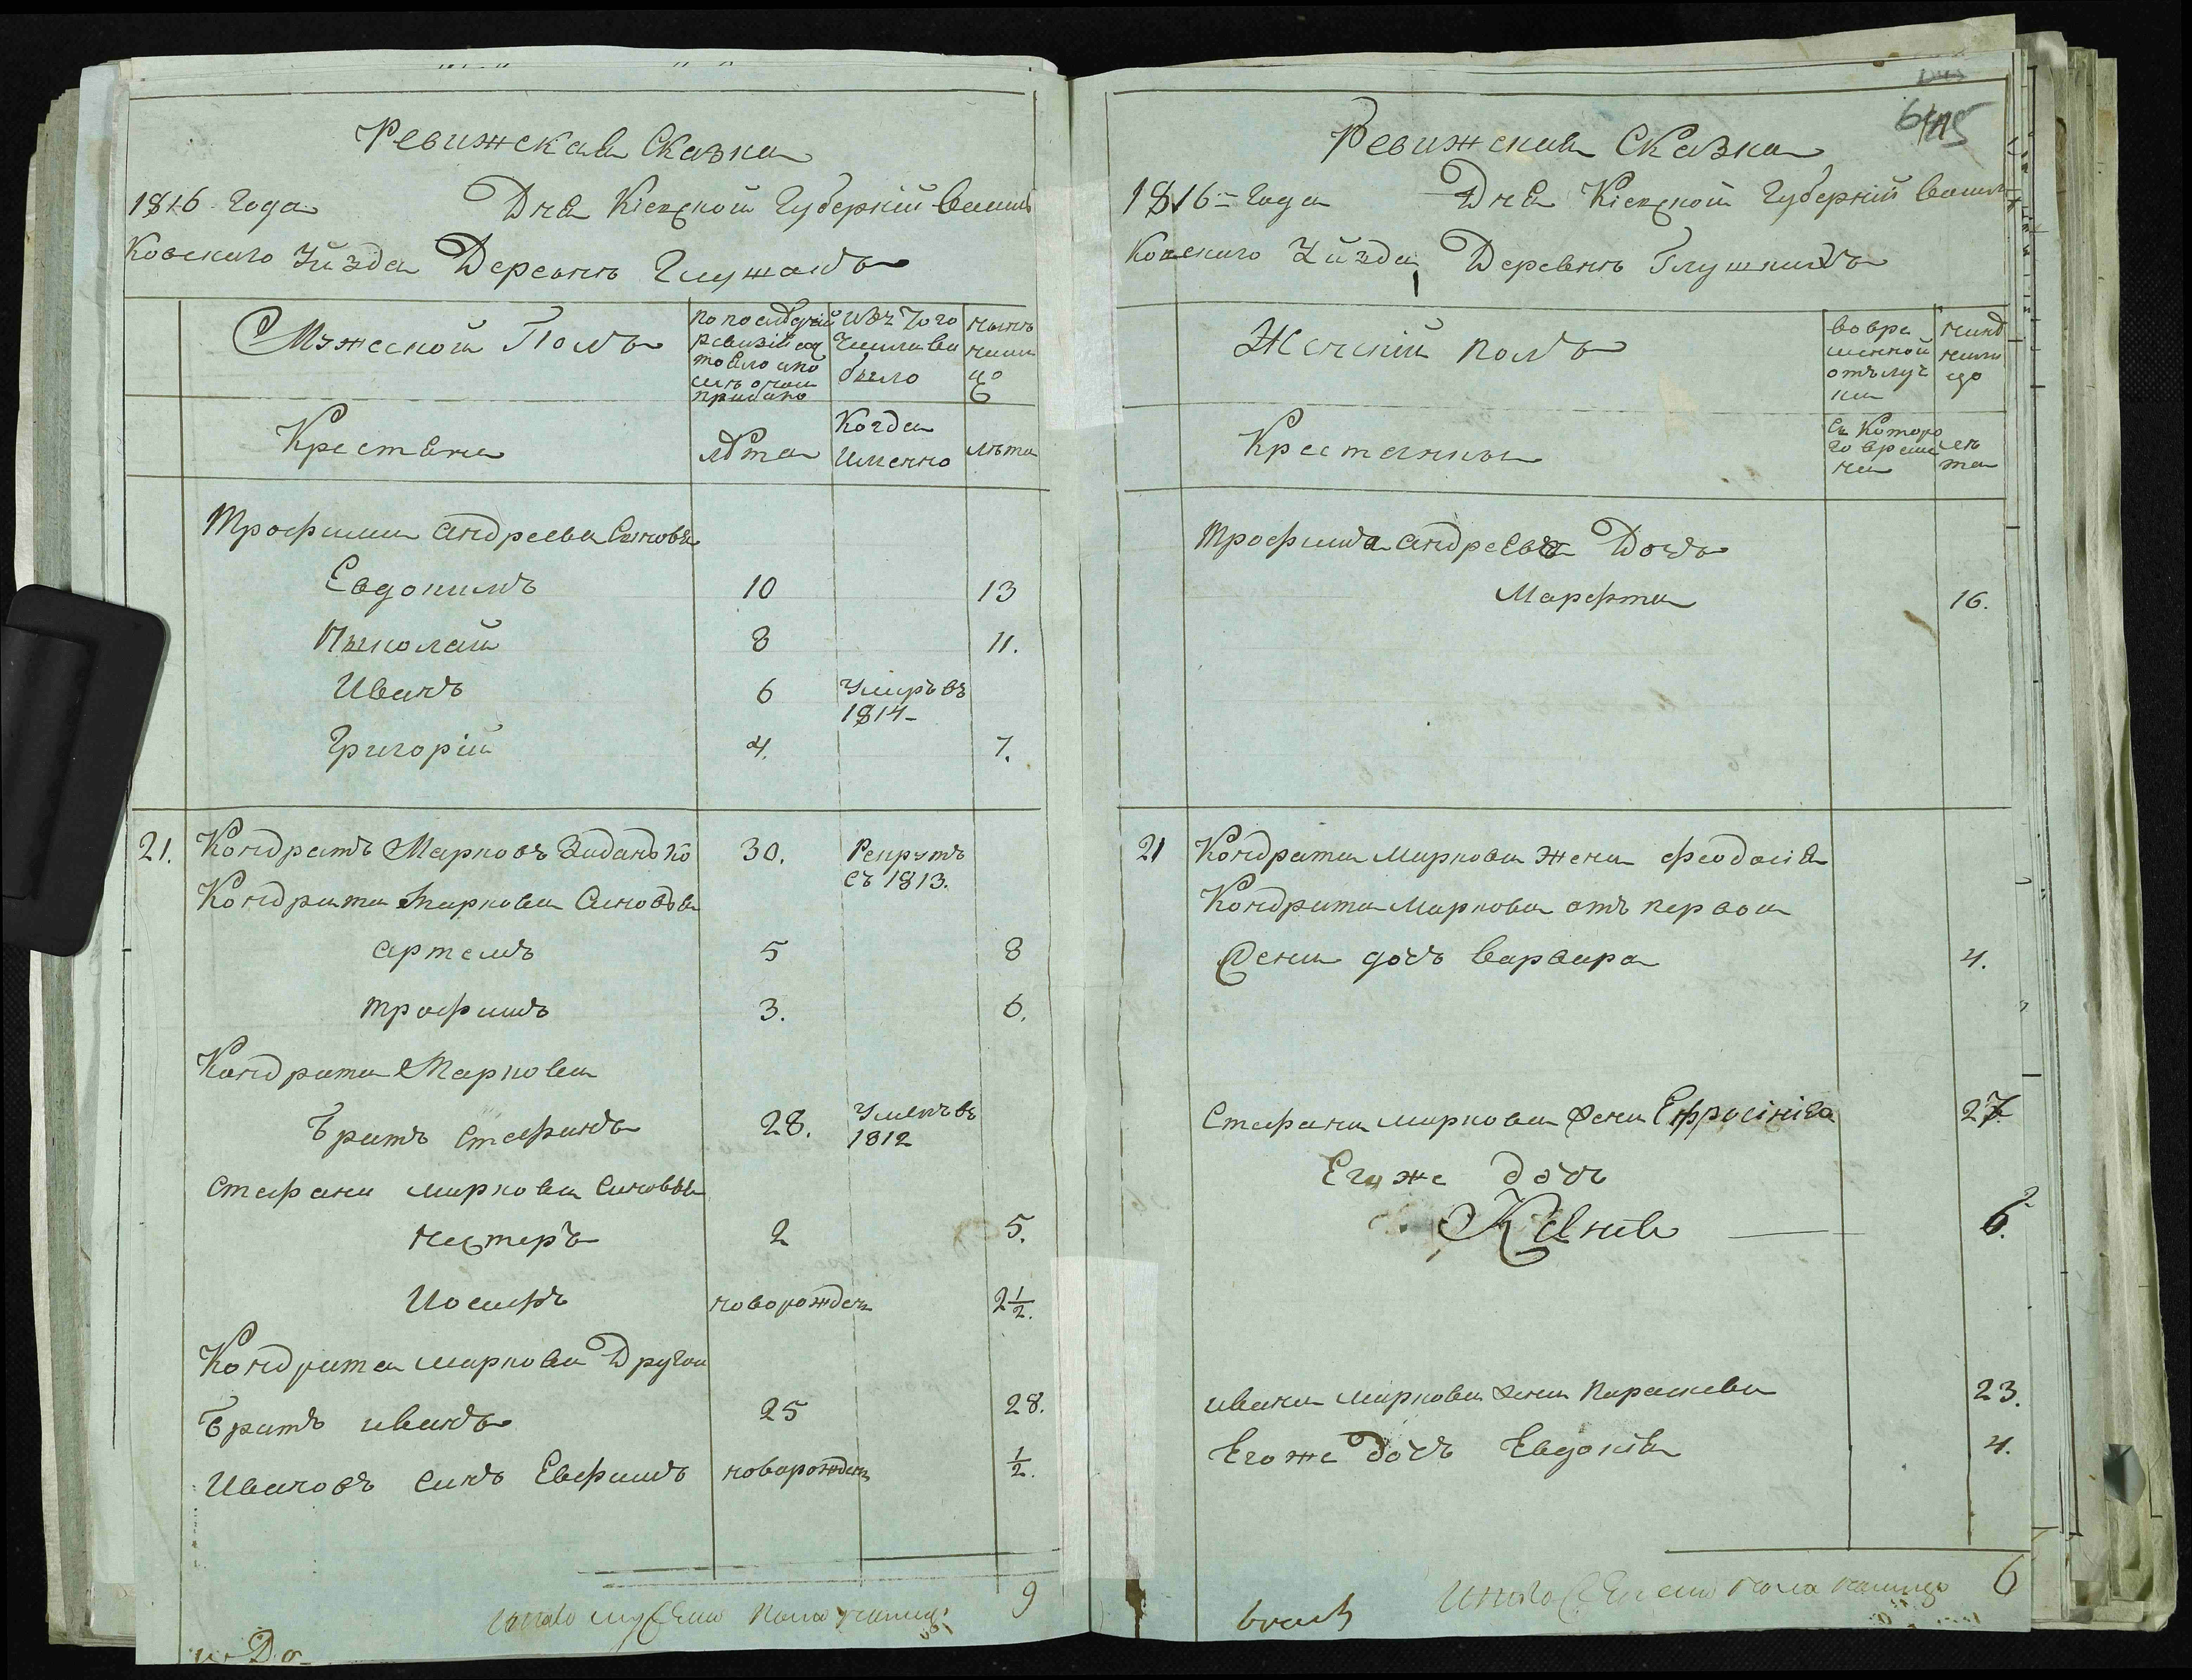 Ревижская Сказка
1816 года Дня Кіевской Губерніи Васил
ковскаго Уйзда Деревнѣ Глушкахъ
Мужеской Полъ
по последней ревизіи состояло и после оной прибыло
изъ того числа выбыло
нынѣ на лицо
Крестьяне
лѣта
Когда Именно
лѣта
Трофима Андреева Сыновья
Евдокимъ 10 13
Николай 8 11.
Иванъ 6 Умеръ въ 1814-
Григорій 4. 7.
21. Кондратъ Марковъ 30. Рекрутъ съ 1813.
Кондрата Маркова Сыновья
Артемъ 5 8
Трофимъ 3. 6.
Кондрата Маркова
Братъ Стефанъ 28. Умеръ въ 1812
Стефана Маркова Сыновья
Нестеръ 2 5.
Иосифъ новорожден 2 1/2.
Кондрата Маркова Другой
Братъ Иванъ 25 28.
Ивановъ Синъ Евфимъ новорожден 1/2.
Итого мужеска пола налицо 9
Ревижская Сказка
1816 года Дня Кіевской Губерніи Васил
ковскаго Уйзда Деревнѣ Глушкахъ
Женскій полъ
во временной отълучки
налицо
Крестьянки
Съ Которого времени
лета
Трофима Андреева Дочь
Марфта 16.
21 Кондрата Маркова жена Феодосія
Кондрата Маркова отъ первой
жени дочь Варвара 4.
Стефана Маркова жена Ефросинія 27
Его же дочь
Ксенія 6.
Ивана Маркова жена Параскева 23.
Его же дочь Евдокія 4.
Итого женска пола налицо 6